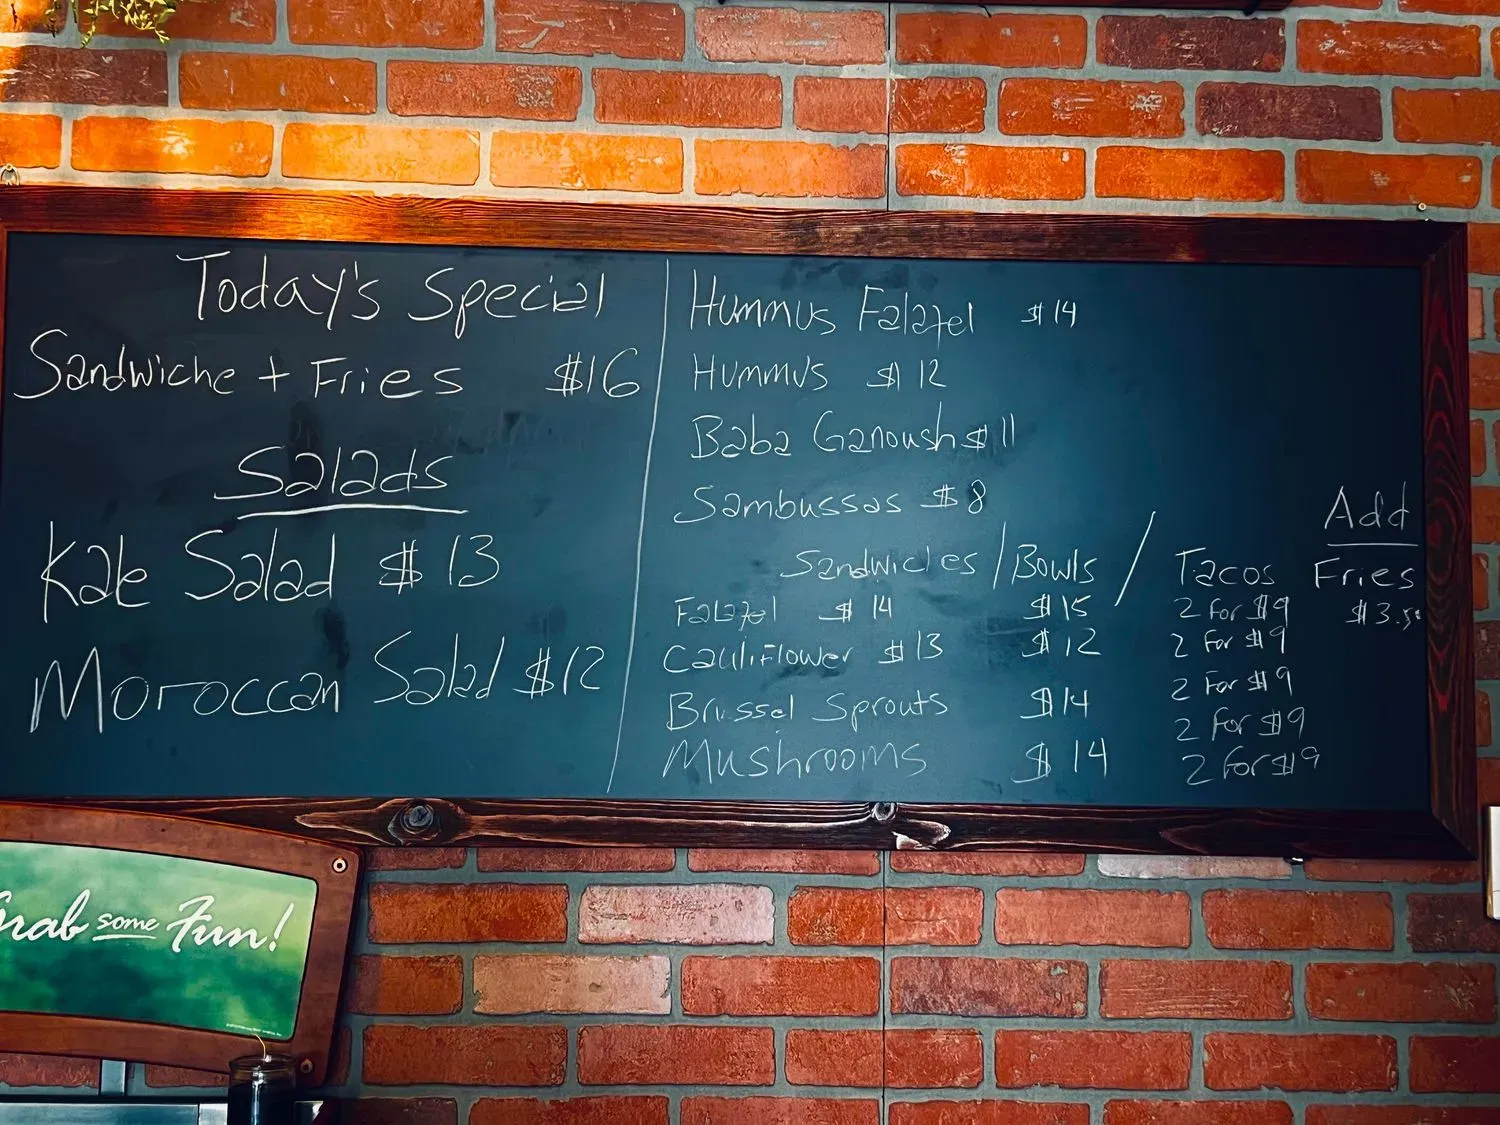 Today's Special
Sandwiche + Fries $16
Salads
Kale Salad $13
Moroccan Salad $12
Hummus Falafel $14
Hummus $12
Baba Ganoush $11
Sambussas $8
Sandwiches / Bowls / Tacos
Falafel $14 $15 2 For $9
Cauliflower $13 $12 2 For $9
2 For $9
Brussel Sprouts $14 2 For $9
Mushrooms $14 2 For $9
Add
Fries
$3.50
Grab some Fun!